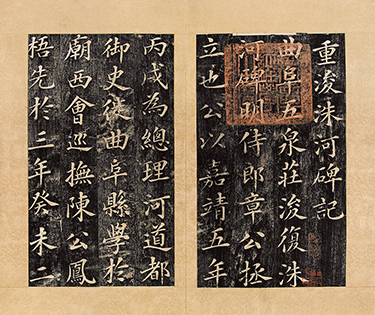 重浚洙河碑記
曲阜五泉莊浚復洙
河碑明侍郎章公拯
立也公以嘉靖五年
丙戌為總理河道都
御史徙曲阜縣學於
廟西會巡撫陳公鳳
梧先於三年癸未二